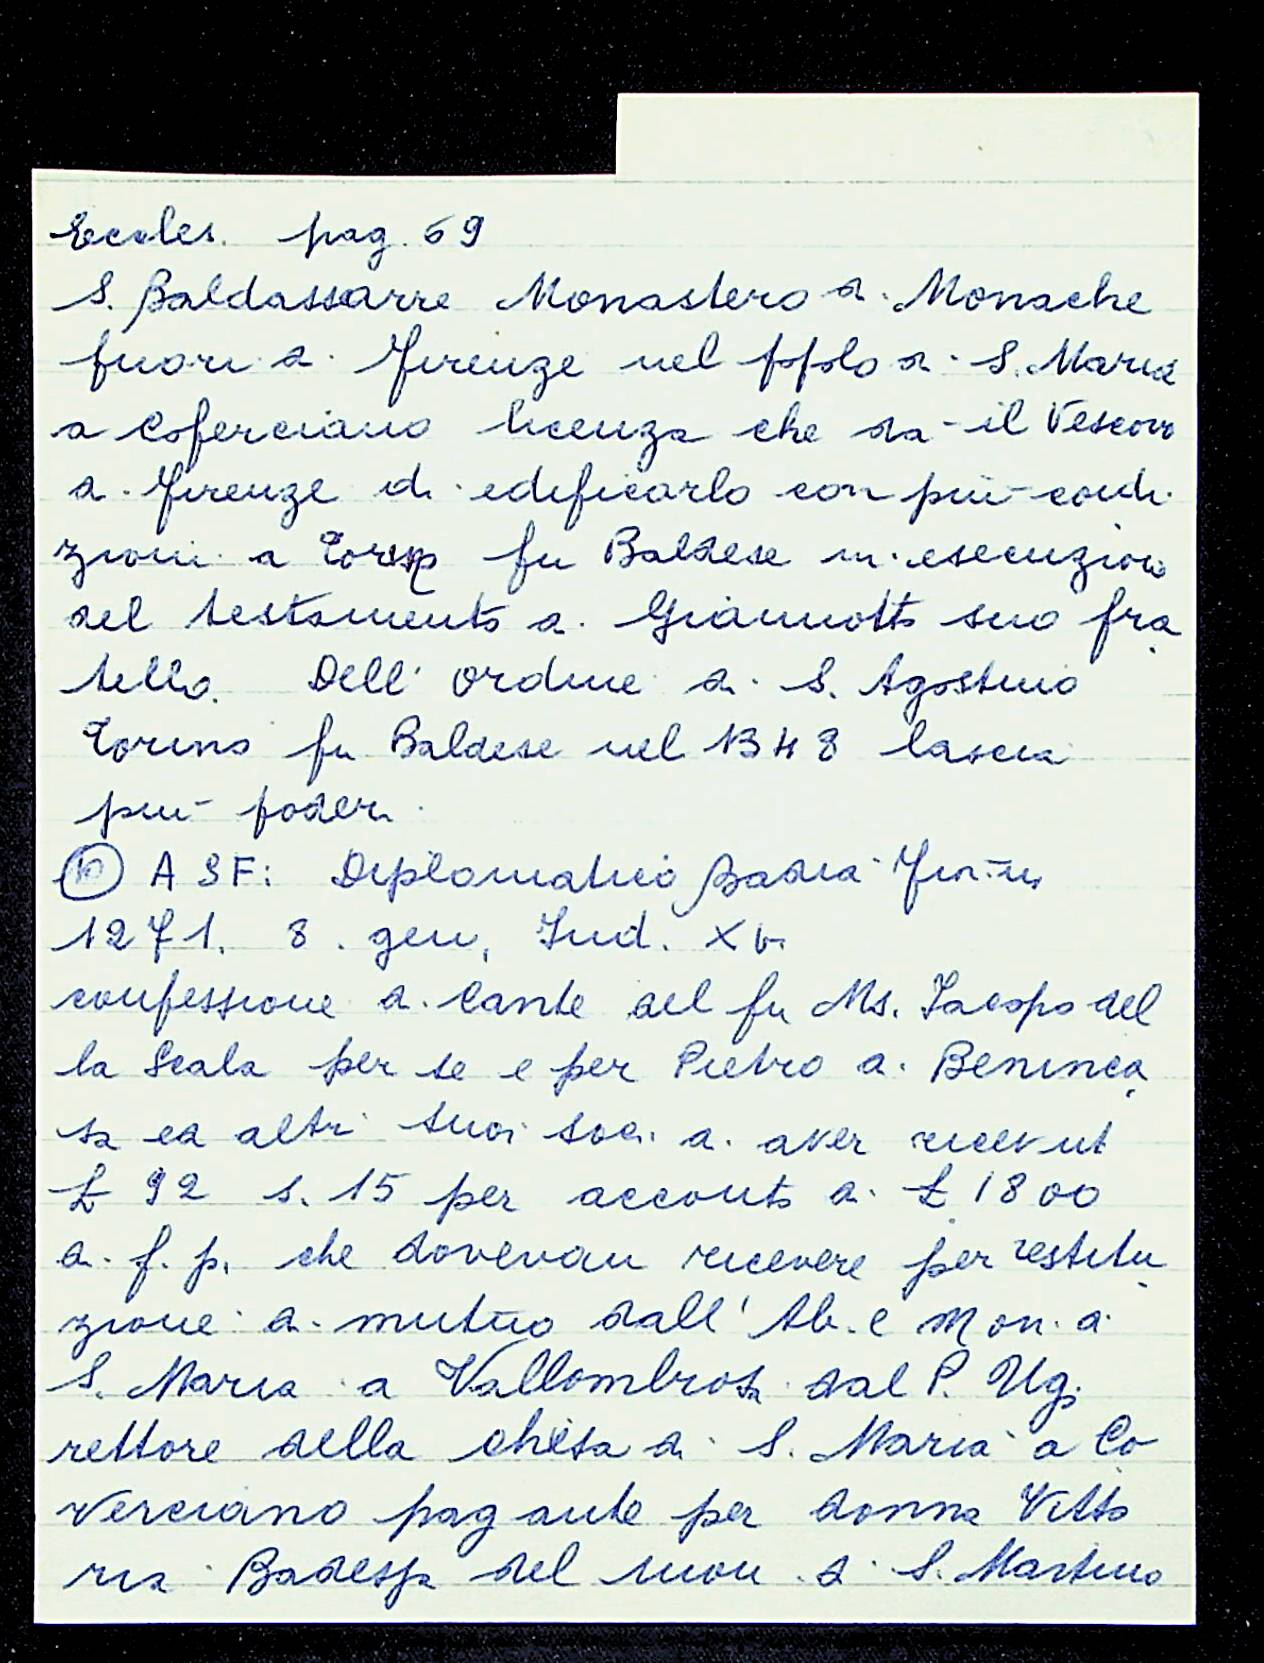 Eccles. pag. 69
S. Baldassarre Monastero di Monache
fuori di Firenze nel popolo di S. Maria
a Coferciano licenza che da il Vescovo
di Firenze di edificarlo con più condi
zioni a Torino fu Baldese in esecuzione
del testamento di Giannotto suo fra
tello. Dell' Ordine di S. Agostino
Torino fu Baldese nel 1348 lascia
più poderi
ASF: Diplomatico Badia
1271. 8. gen, Ind. XV.
confessione di Cante del fu Ms. Jacopo del
la Scala per se e per Pietro di Beninca
sa ed altri suoi soci di aver ricevut
£ 92 s. 15 per acconto di £ 1800
di f. p. che dovevan ricevere per restitu
zione di mutuo dall' Ab. e Mon. di
S. Maria a Vallombrosa dal P. Ugo
rettore della chiesa di S. Maria a Co
verciano pagante per donna Vitto
ria Badessa del mon. di S. Martino